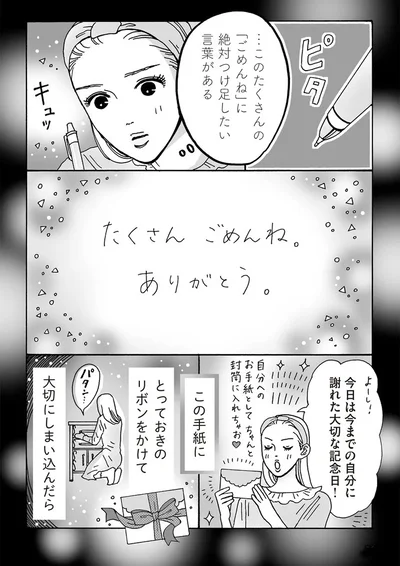 ピタ
…このたくさんの
「ごめんね」に
絶対つけ足したい
言葉がある
キュッ
たくさん ごめんね。
ありがとう。
よーし!
今日は今までの自分に
謝れた大切な記念日!
自分への
お手紙として ちゃんと
封筒に入れちゃお♡
この手紙に
とっておきの
リボンをかけて
大切にしまい込んだら
パタン…